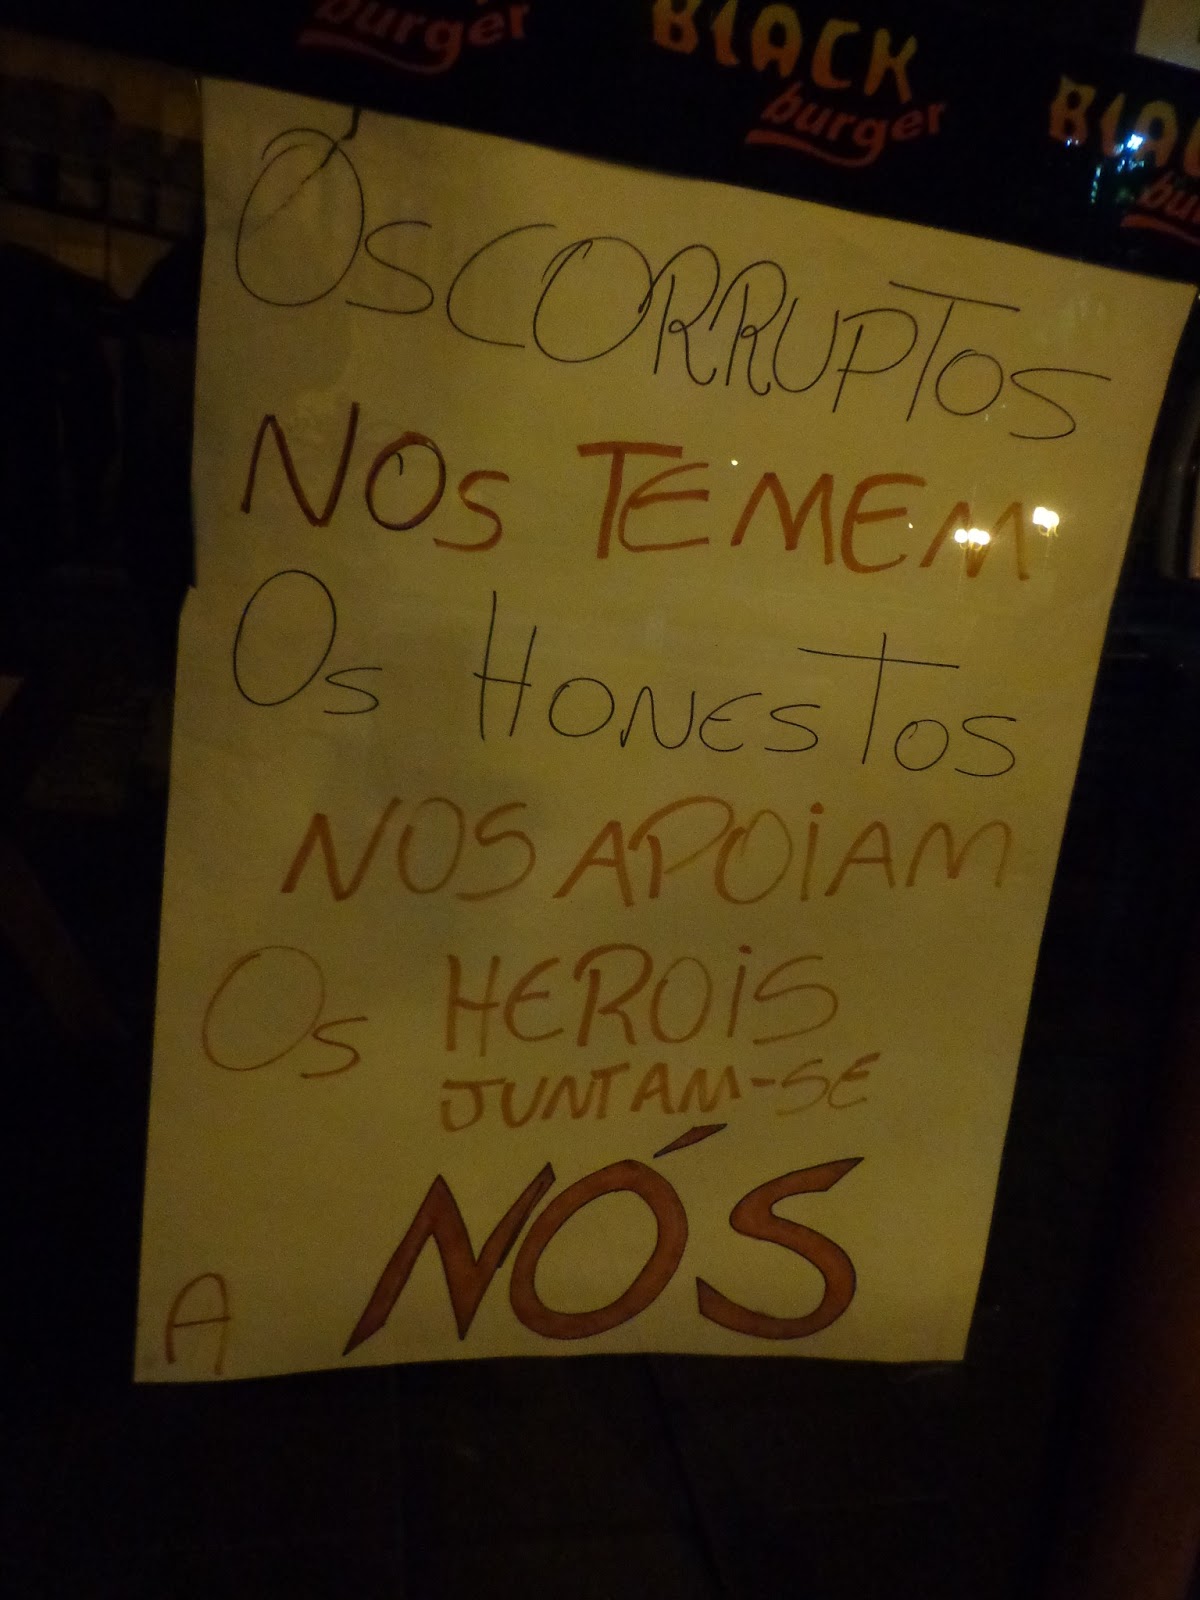 burger
BLACK
burger
BLAC
bur
OS CORRUPTOS
NOS TEMEM
OS HONESTOS
NOS APOIAM
OS HEROIS
JUNTAM-SE
A NÓS